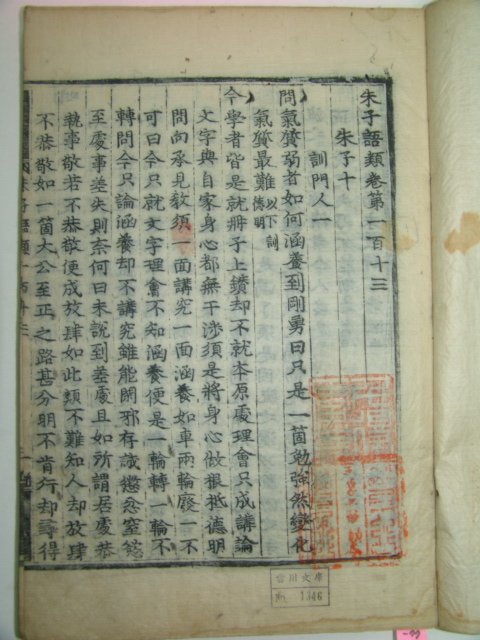 朱子語類卷第一百十三
朱子十
訓門人一
問氣質弱者如何涵養到剛勇曰只是一箇勉強然變化
氣質最難以下訓德明
今學者皆是就冊子上鑽却不就本原處理會只成講論
文字與自家身心都無干涉須是將身心做根柢德明
問向承見教須一面講究一面涵養如車兩輪廢一不
可曰今只就文字理會不知涵養便是一輪轉一輪不
轉問今只論涵養却不講究雖能閑邪存誠懲忿窒慾
至處事差失則奈何曰未說到差處且如所謂居處恭
執事敬若不恭敬便成放肆如此類不難知人却放肆
不恭敬如一箇大公至正之路甚分明不肯行却尋得
文庫
No. 1346